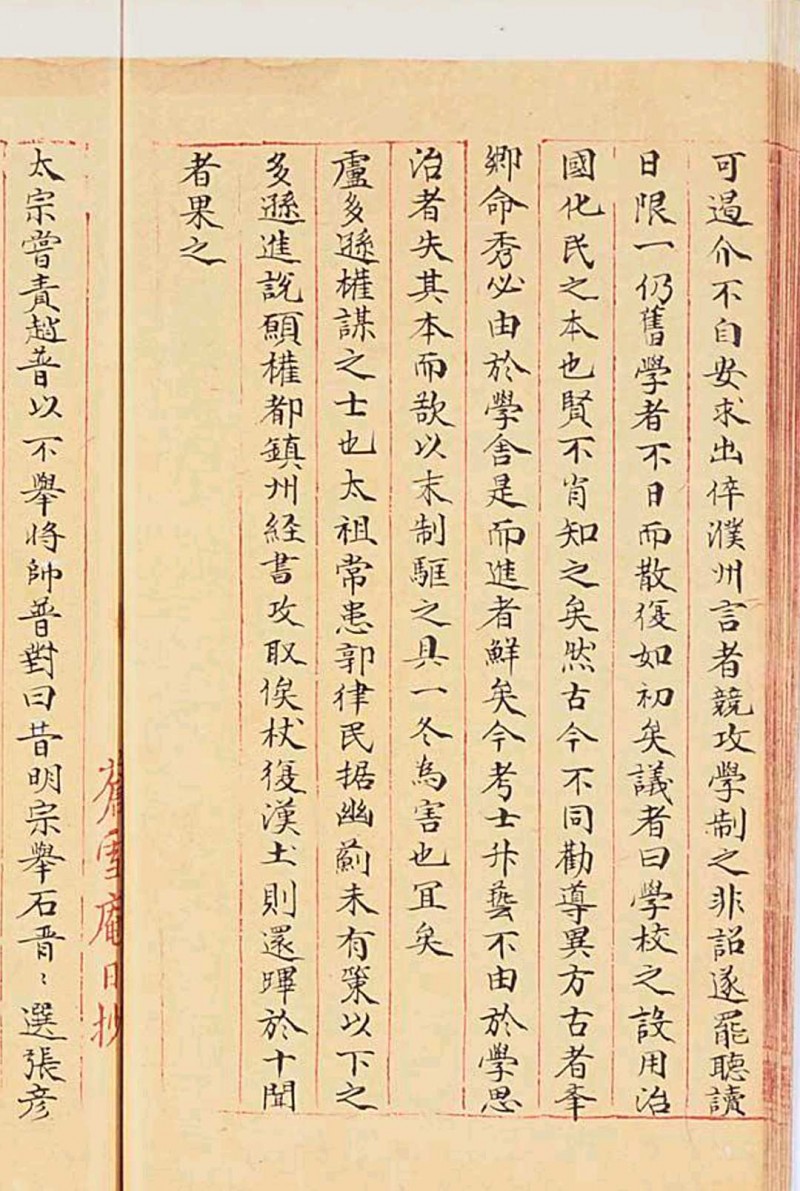 可過介不自安求出倅濮州言者競攻學制之非詔遂罷聽讀
日限一仍舊學者不日而散復如初矣議者曰學校之設用治
國化民之本也賢不肖知之矣然古今不同勸導異方古者
鄉命秀必由於學舍是而進者鮮矣今考士升藝不由於學思
治者失其本而欲以末制駈之具一冬為害也冝矣
盧多遜權謀之士也太祖常患郭律民据幽薊未有策以下之
多遜進說願權都鎮州経書攻取俟杖復漢土則還蹕於十聞
者果之
太宗嘗責趙普以不舉将帥普對曰昔明宗舉石晋〻選張彦
舊雪庵日抄